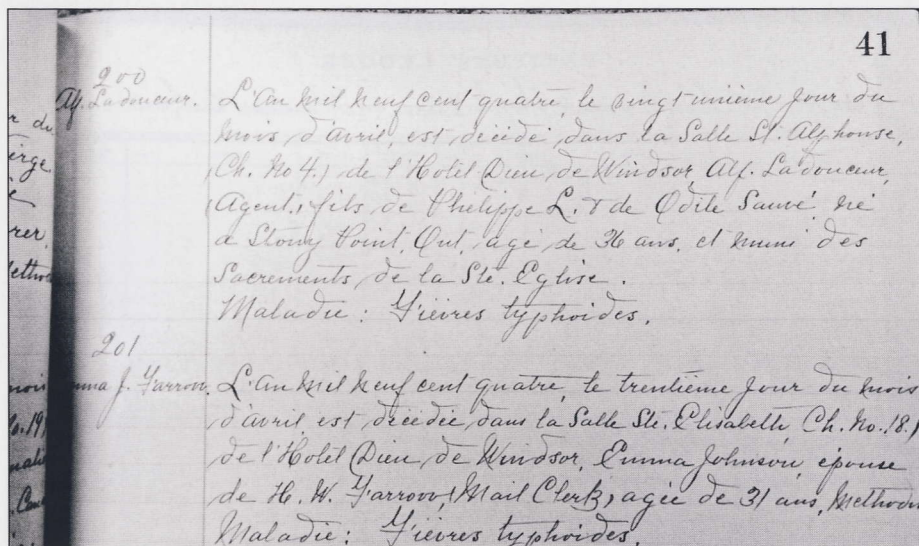 41
200
Alf. Ladouceur.
L'An mil neuf cent quatre, le vingt unième jour du
mois d'avril, est décédé, dans la Salle St. Alphonse,
(Ch. No 4.) de l'Hotel Dieu de Windsor, Alf. Ladouceur,
(Agent,) fils de Philippe L. & de Odile Sauvé, né
a Stony Point, Ont, agé de 36 ans, et muni des
Sacrements de la Ste. Eglise.
Maladie: Fièvres typhoides.
201
Emma J. Farrow.
L'An mil neuf cent quatre, le trentième jour du mois
d'avril est décédée dans la Salle Ste. Elisabeth, Ch. No. 18.)
de l'Hotel Dieu de Windsor, Emma Johnson, épouse
de H. W. Farrow, (Mail Clerk) agée de 31 ans, Method
Maladie: Fièvres typhoides.